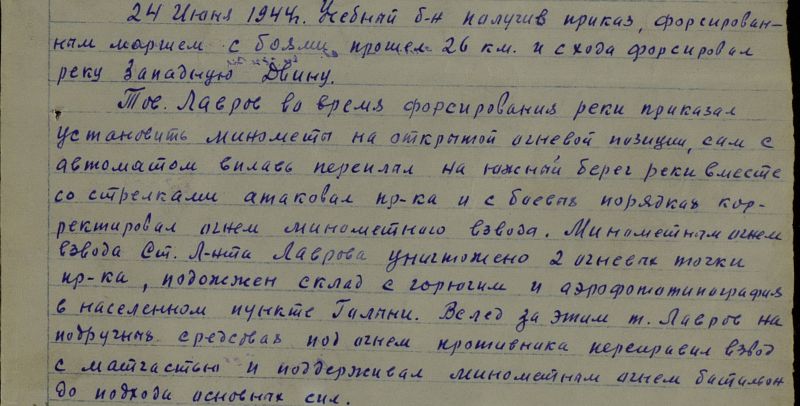 24 Июня 1944г. Учебный б-н получив приказ, форсирован-
ным маршем с боями прошел 26 км. и с хода форсировал
реку Западную Двину.
Тов. Лавров во время форсирования реки приказал
установить минометы на открытой огневой позиции, сам с
автоматом вплавь переплал на южный берег реки вместе
со стрелками атаковал пр-ка и с боевых порядках кор-
ректировал огнем минометного взвода. Минометным огнем
взвода Ст. Л-нта Лаврова уничтожено 2 огневых точки
пр-ка, подожжен склад с горючим и аэрофототипография
в населенном пункте Галыни. Вслед за этим т. Лавров на
подручных средсвах под огнем противника переправил взвод
с матчастью и поддерживал минометным огнем батальон
до подхода основных сил.